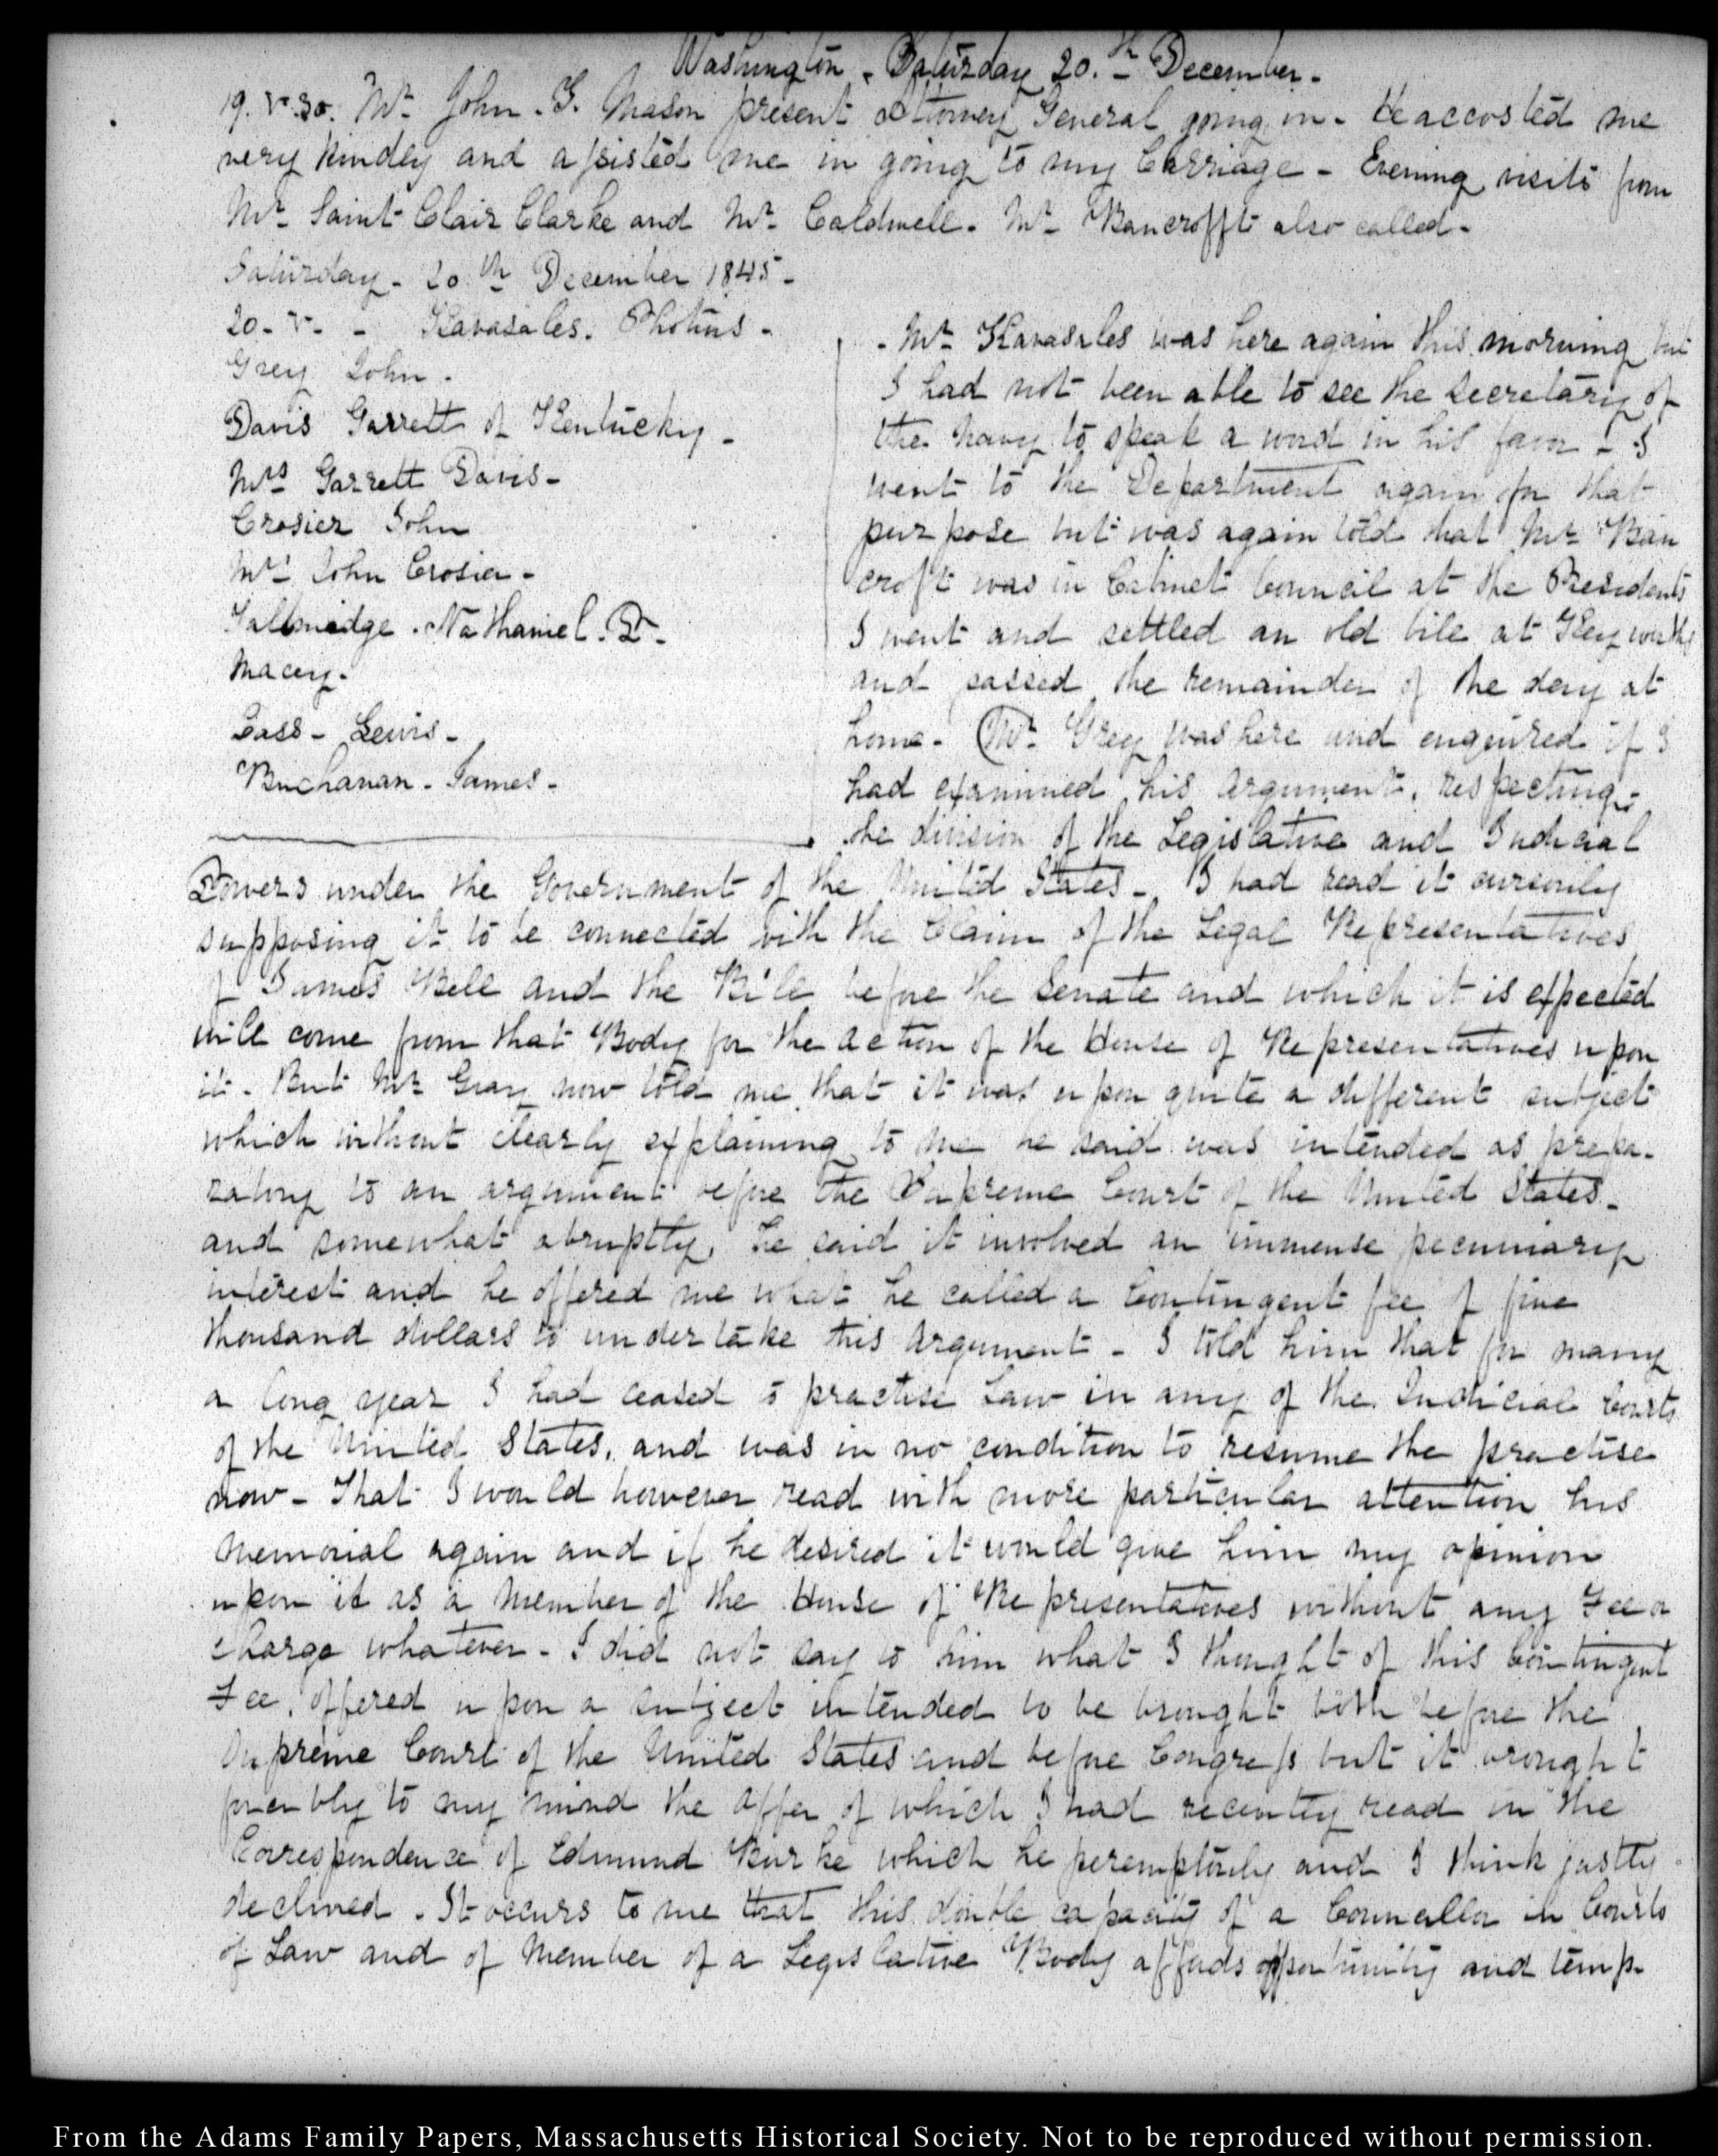 Washington. Saturday 20.th December.
19. V.30. Mr. John. Y. Mason present Attorney General going in. He accosted me
very kindly and assisted me in going to my Carriage. Evening visits from
Mr. Saint Clair Clarke and Mr. Caldwell. Mr. Bancrofft also called.
Saturday. 20th December 1845.
20. V. Kavasales. Photius.
Grey John.
Davis Garrett of Kentucky.
Mrs Garrett Davis.
Crosier John
Mrs John Crosier.
Tallmadge. Nathaniel. P.
Macey.
Cass. Lewis.
Buchanan. James.
Mr Kavasales was here again this morning but
I had not been able to see the Secretary of
the Navy to speak a word in his favor. I
went to the Department again for that
purpose but was again told that Mr Ban
croft was in Cabinet Council at the Presidents
I went and settled an old bill at Keyworths
and passed the remainder of the day at
home. Mr. Grey was here and enquired if I
had examined his argument, respecting
the division of the Legislative and Judicial
Powers under the Government of the United States. I had read it cursorily
supposing it to be connected with the Claim of the Legal Representatives
of James Bell and the Bill before the Senate and which it is expected
will come from that Body for the action of the House of Representatives upon
it. But Mr Gray now told me that it was upon quite a different subject
which without clearly explaining to me he said was intended as prepa-
ratory to an argument before the Supreme Court of the United States.
and somewhat abruptly, he said it involved an immense pecuniary
interest and he offered me what he called a Contingent fee of five
thousand dollars to undertake this Argument. I told him that for many
a long year I had ceased to practise Law in any of the Judicial Courts
of the United States, and was in no condition to resume the practise
now. That I would however read with more particular attention his
Memorial again and if he desired it would give him my opinion
upon it as a Member of the House of Representatives without any Fee or
charge whatever. I did not say to him what I thought of this Contingent
Fee, offered upon a subject intended to be brought both before the
Supreme Court of the United States and before Congress but it brought
forcibly to my mind the offer of which I had recently read in the
Correspondence of Edmund Burke which he peremptorily and I think justly
declined. It occurs to me that this double capacity of a Councellor in Courts
of Law and of Member of a Legislative Body affords opportunity and temp-
From the Adams Family Papers, Massachusetts Historical Society. Not to be reproduced without permission.